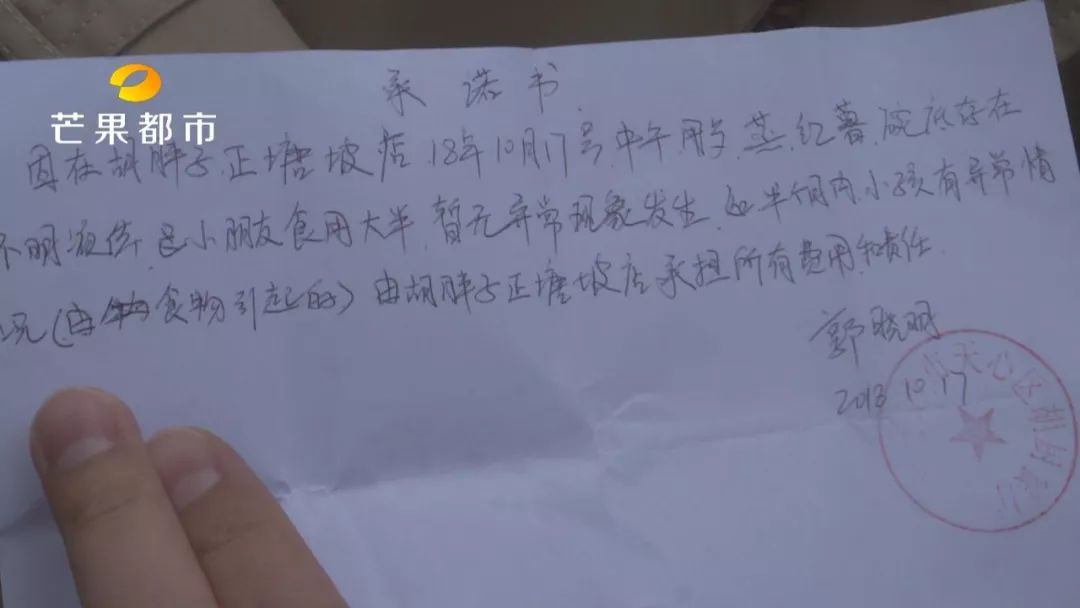 芒果都市
承诺书
因在胡胖子正塘坡店18年10月17号中午用歺,蒸红薯碗底存在
不明液体,且小朋友食用大半,暂无异常现象发生,如半个月内,小孩有异常情
况(由食物引起的)由胡胖子正塘坡店承担所有费用和责任.
郭晓明
2018 10.17
天心区胡